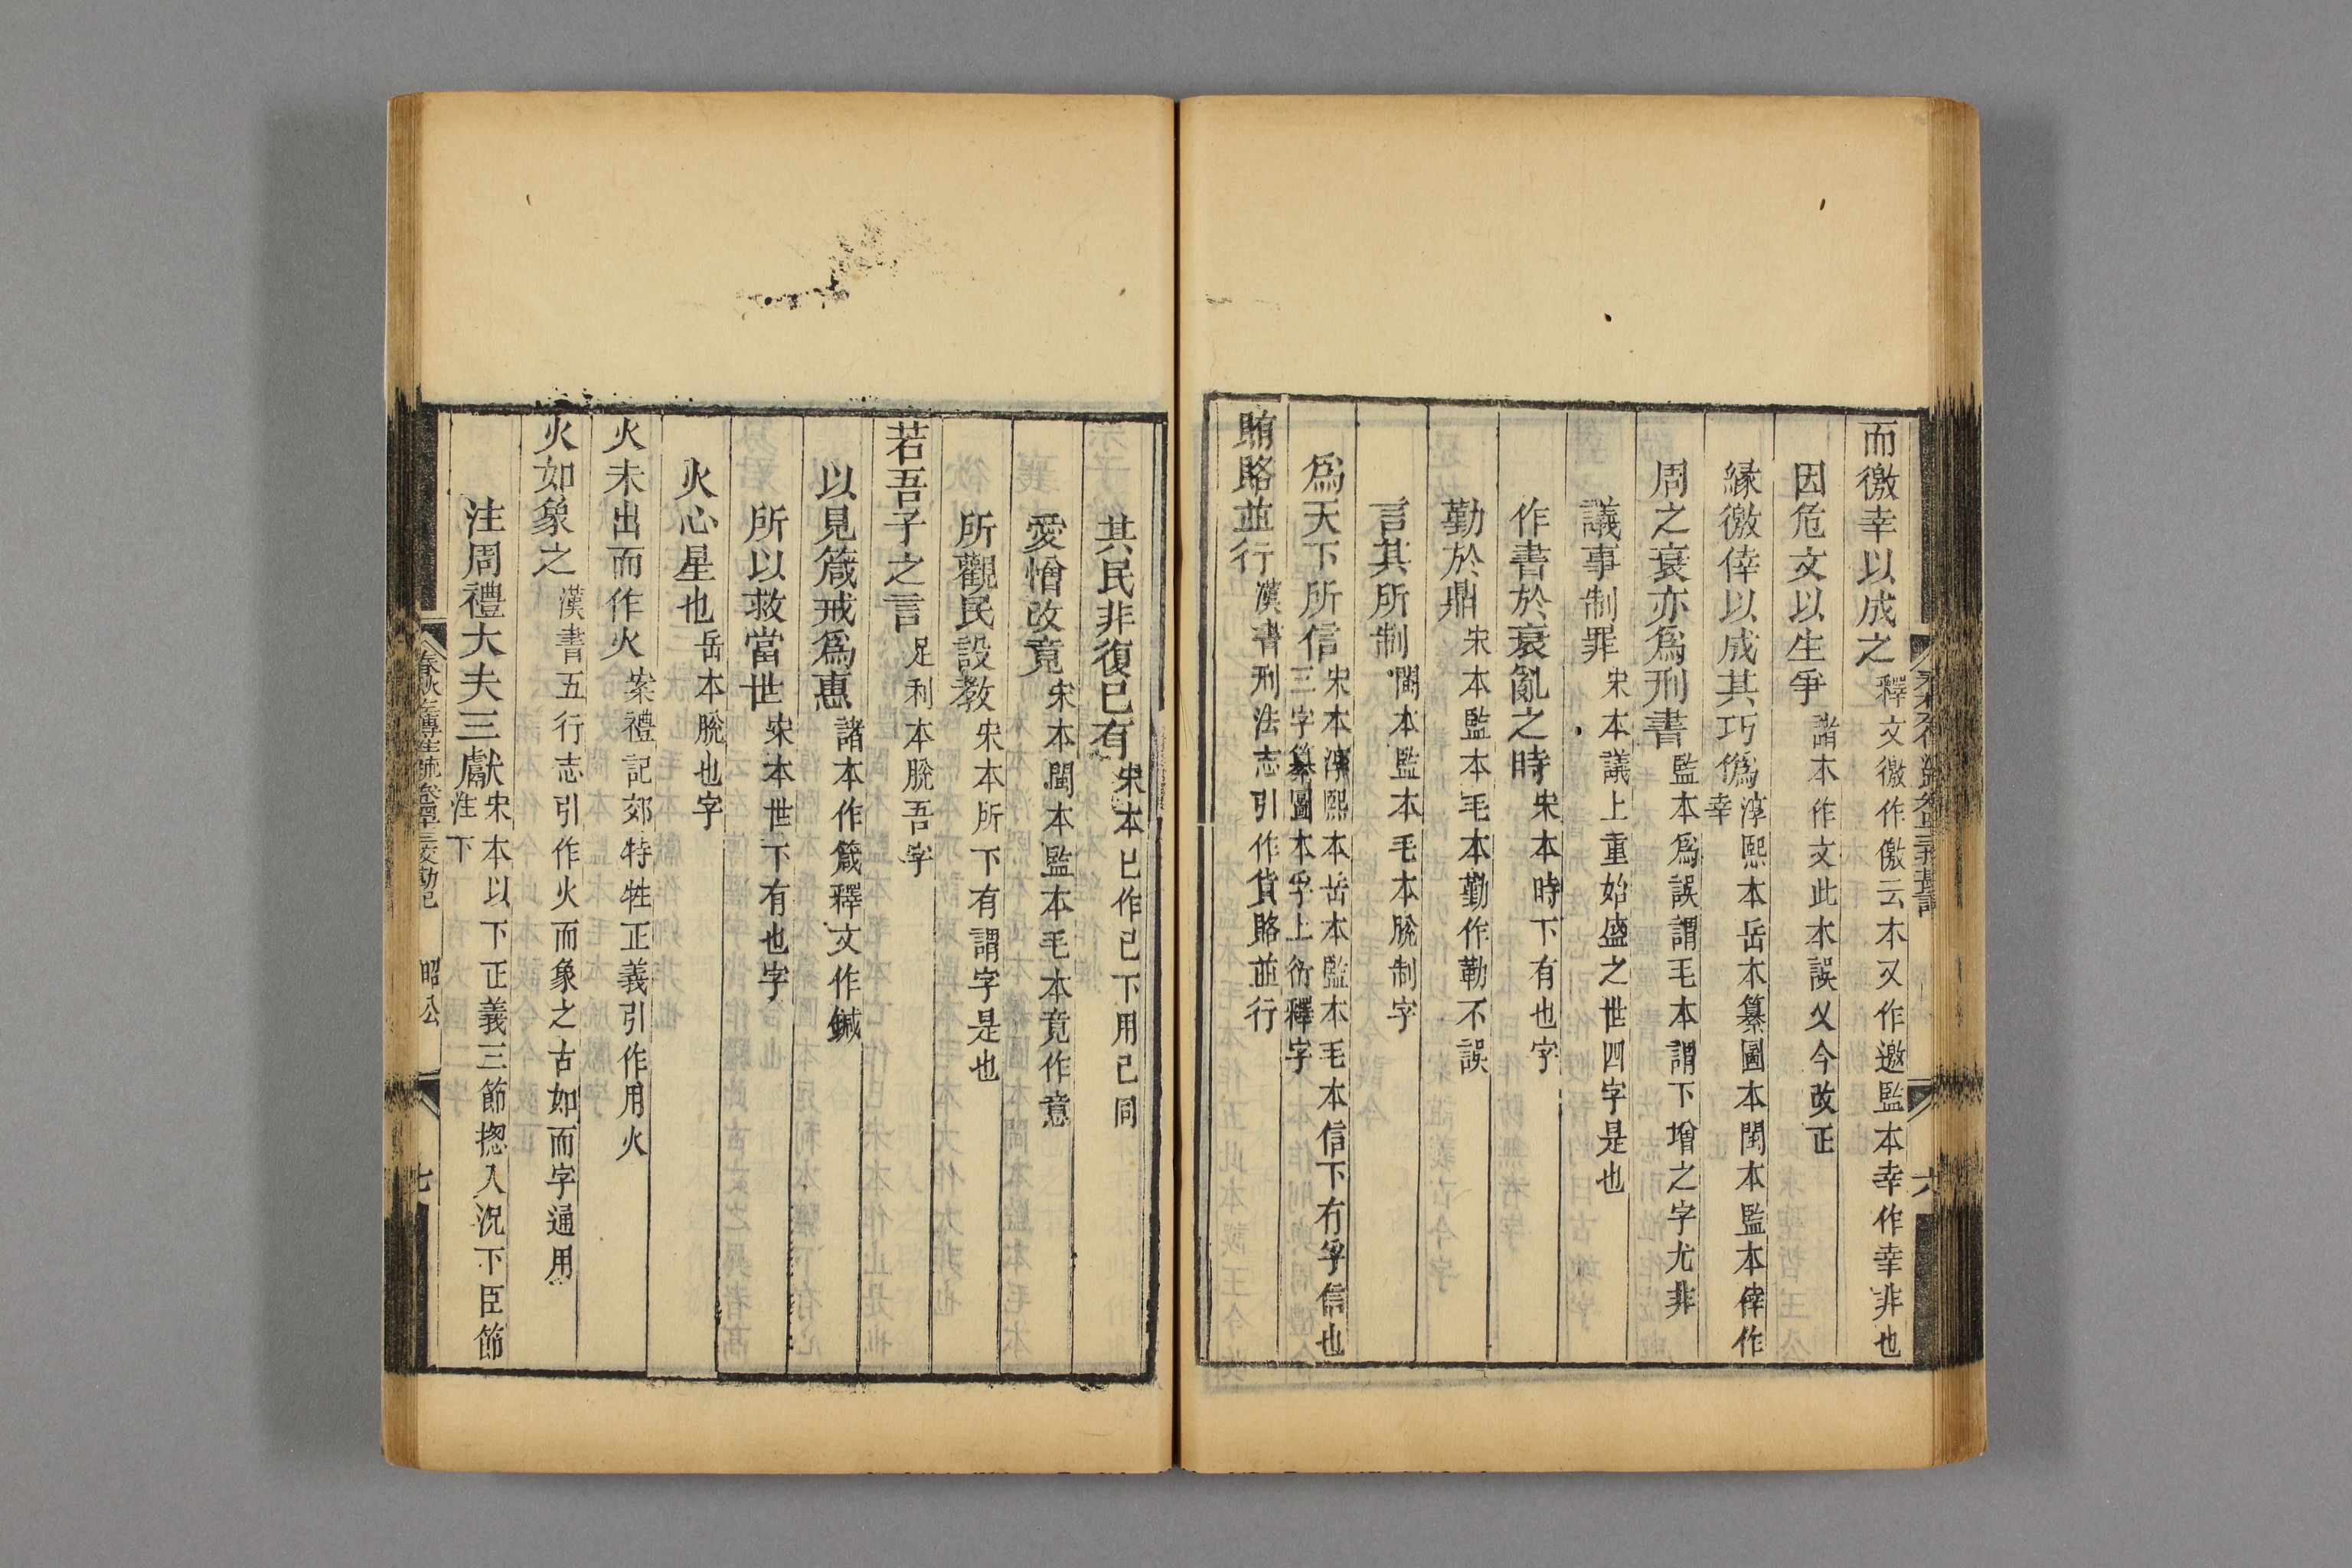 而徼幸以成之釋文徼作儌云本又作邀監本幸作幸非也
因危文以生爭諸本作文此本誤父今改正
緣徼倖以成其巧僞淳熙本岳本纂圖本閩本監本倖作幸
周之衰亦爲刑書監本爲誤謂毛本謂下增之字尤非
議事制罪宋本議上重始盛之世四字是也
作書於衰亂之時宋本時下有也字
勤於鼎宋本監本毛本勤作勒不誤
言其所制閩本監本毛本脫制字
爲天下所信宋本淳熙本岳本監本毛本信下有孚信也三字纂圖本孚上衍釋字
賄賂並行漢書刑法志引作貨賂並行
其民非復已有宋本已作己下用己同
愛憎改竟宋本閩本監本毛本竟作意
所觀民設教宋本所下有謂字是也
若吾子之言足利本脫吾字
以見箴戒爲惠諸本作箴釋文作鍼
所以救當世宋本世下有也字
火心星也岳本脫也字
火未出而作火案禮記郊特牲正義引作用火
火如象之漢書五行志引作火而象之古如而字通用
注周禮大夫三獻宋本以下正義三節揔入況下臣節注下
昭公
七
六